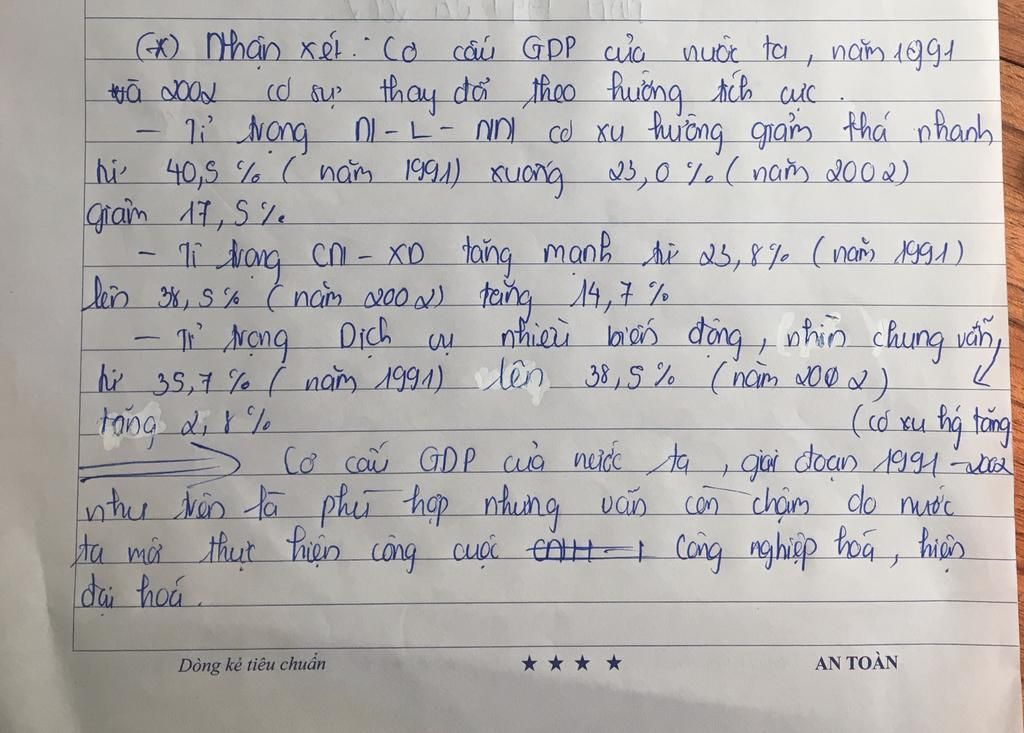 (*) Nhận xét: Cơ cấu GDP của nước ta, năm 1991
và 2002 có sự thay đổi theo hướng tích cực.
– Tỉ trọng N – L – NN có xu hướng giảm khá nhanh
từ 40,5% (năm 1991) xuống 23,0% (năm 2002)
giảm 17,5%.
– Tỉ trọng CN – XD tăng mạnh từ 23,8% (năm 1991)
lên 38,5% (năm 2002) tăng 14,7%
– Tỉ trọng Dịch vụ nhiều biến động, nhìn chung vẫn
từ 35,7% (năm 1991) lên 38,5% (năm 2002)
tăng 2,8% (có xu hg tăng
⇒ Cơ cấu GDP của nước ta, giai đoạn 1991 – 2002
như trên là phù hợp nhưng vẫn còn chậm do nước
ta mới thực hiện công cuộc Công nghiệp hoá, hiện
đại hoá.
Dòng kẻ tiêu chuẩn ★ ★ ★ ★ AN TOÀN